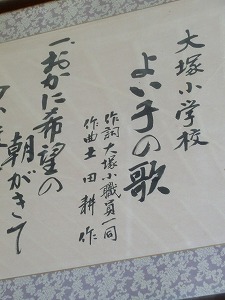 大塚小学校
よい子の歌
作詞 大塚小職員一同
作曲 土田耕作
一、おかに希望の
朝がきて